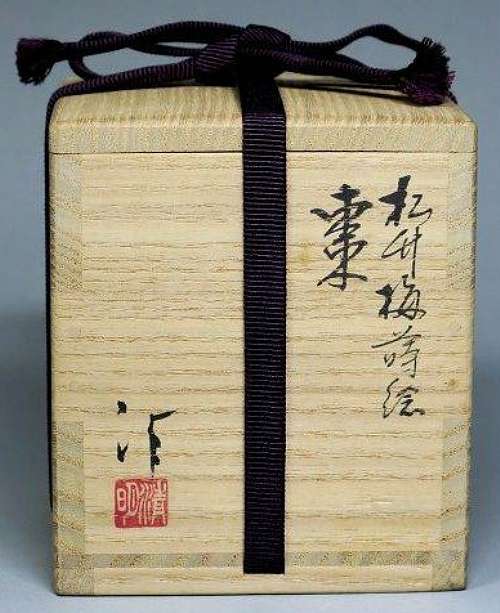 松竹梅蒔絵
棗